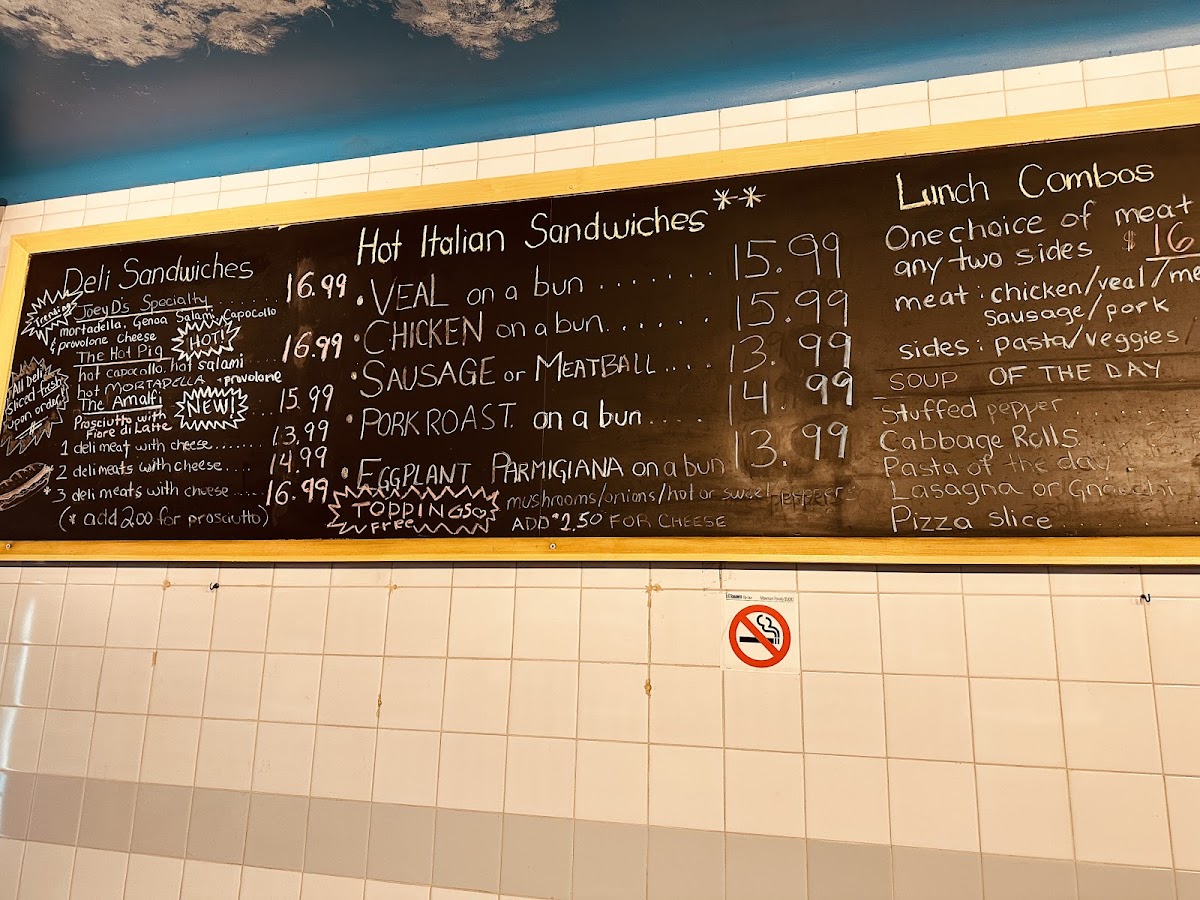 Deli Sandwiches
Trending
JoeyD's Specialty ........ 16.99
mortadella, Genoa Salami, Capocollo
& provolone cheese
The Hot Pig HOT! 16.99
hot capocollo, hot salami
hot MORTADELLA + provolone
The Amalfi NEW! .. 15.99
Prosciutto with
Fiore di Latte
All Deli
Sliced fresh
upon order
1 deli meat with cheese....... 13.99
2 deli meats with cheese.... 14.99
* 3 deli meats with cheese .... 16.99
(* add 2.00 for prosciutto)
Hot Italian Sandwiches **
• VEAL on a bun ...... 15.99
• CHICKEN on a bun...... 15.99
• SAUSAGE or MEATBALL.... 13.99
• PORK ROAST on a bun..... 14.99
• EGGPLANT PARMIGIANA on a bun 13.99
TOPPINGS
FREE
mushrooms/onions/hot or sweet peppers
ADD $2.50 FOR CHEESE
Lunch Combos
One choice of meat
any two sides $16
meat: chicken/veal/me
sausage/pork
sides: pasta/veggies/
SOUP OF THE DAY
Stuffed pepper
Cabbage Rolls
Pasta of the day
Lasagna or Gnocchi
Pizza Slice